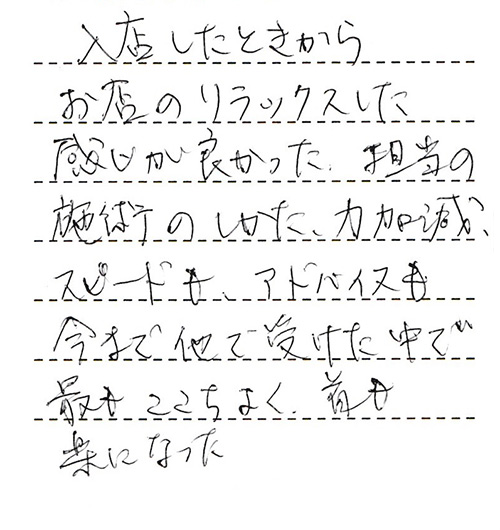 入店したときから
お店のリラックスした
感じが良かった、担当の
施術のしかた、力加減、
スピードも、アドバイスも
今まで他で受けた中で
最もここちよく、首も
楽になった